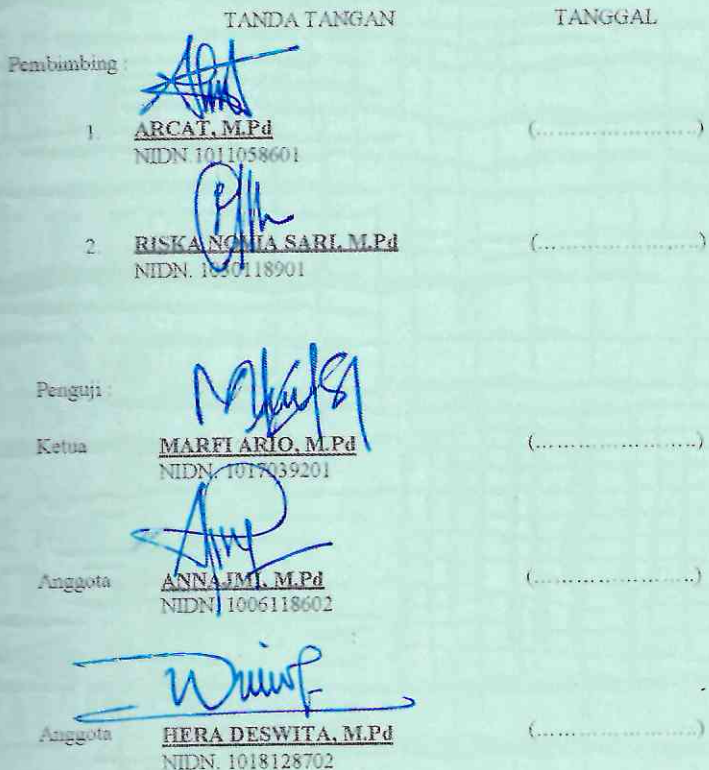 TANDA TANGAN TANGGAL
Pembimbing :
1. ARCAT, M.Pd (........................)
NIDN 1011058601
2. RISKA NOVIA SARI, M.Pd (........................)
NIDN. 1030118901
Penguji :
Ketua MARFI ARIO, M.Pd (........................)
NIDN. 1017039201
Anggota ANNAJMI, M.Pd (........................)
NIDN. 1006118602
Anggota HERA DESWITA, M.Pd (........................)
NIDN. 1018128702